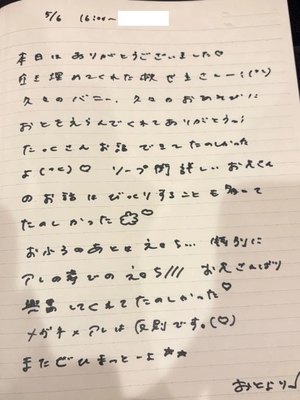 5/6 16:00〜
本日はありがとうございました♡
穴を埋めてくれた救世主さんー!(°▽°)
久々のバニー、久々のおあそびに
おとをえらんでくれてありがとう〜!
たっくさんお話できてたのしかった
よ(°▽°)♡ ソープ関詳しいお兄さん
のお話はびっくりすることも多くて
たのしかった♡
おふろのあとはえ□ち… 特別に
アレの方びのえ□ち/// お兄さんばり
興奮してくれてたのしかった♡
メガネ×アレは反則です。(♡)
またぜひきっとーよ★★
おとより